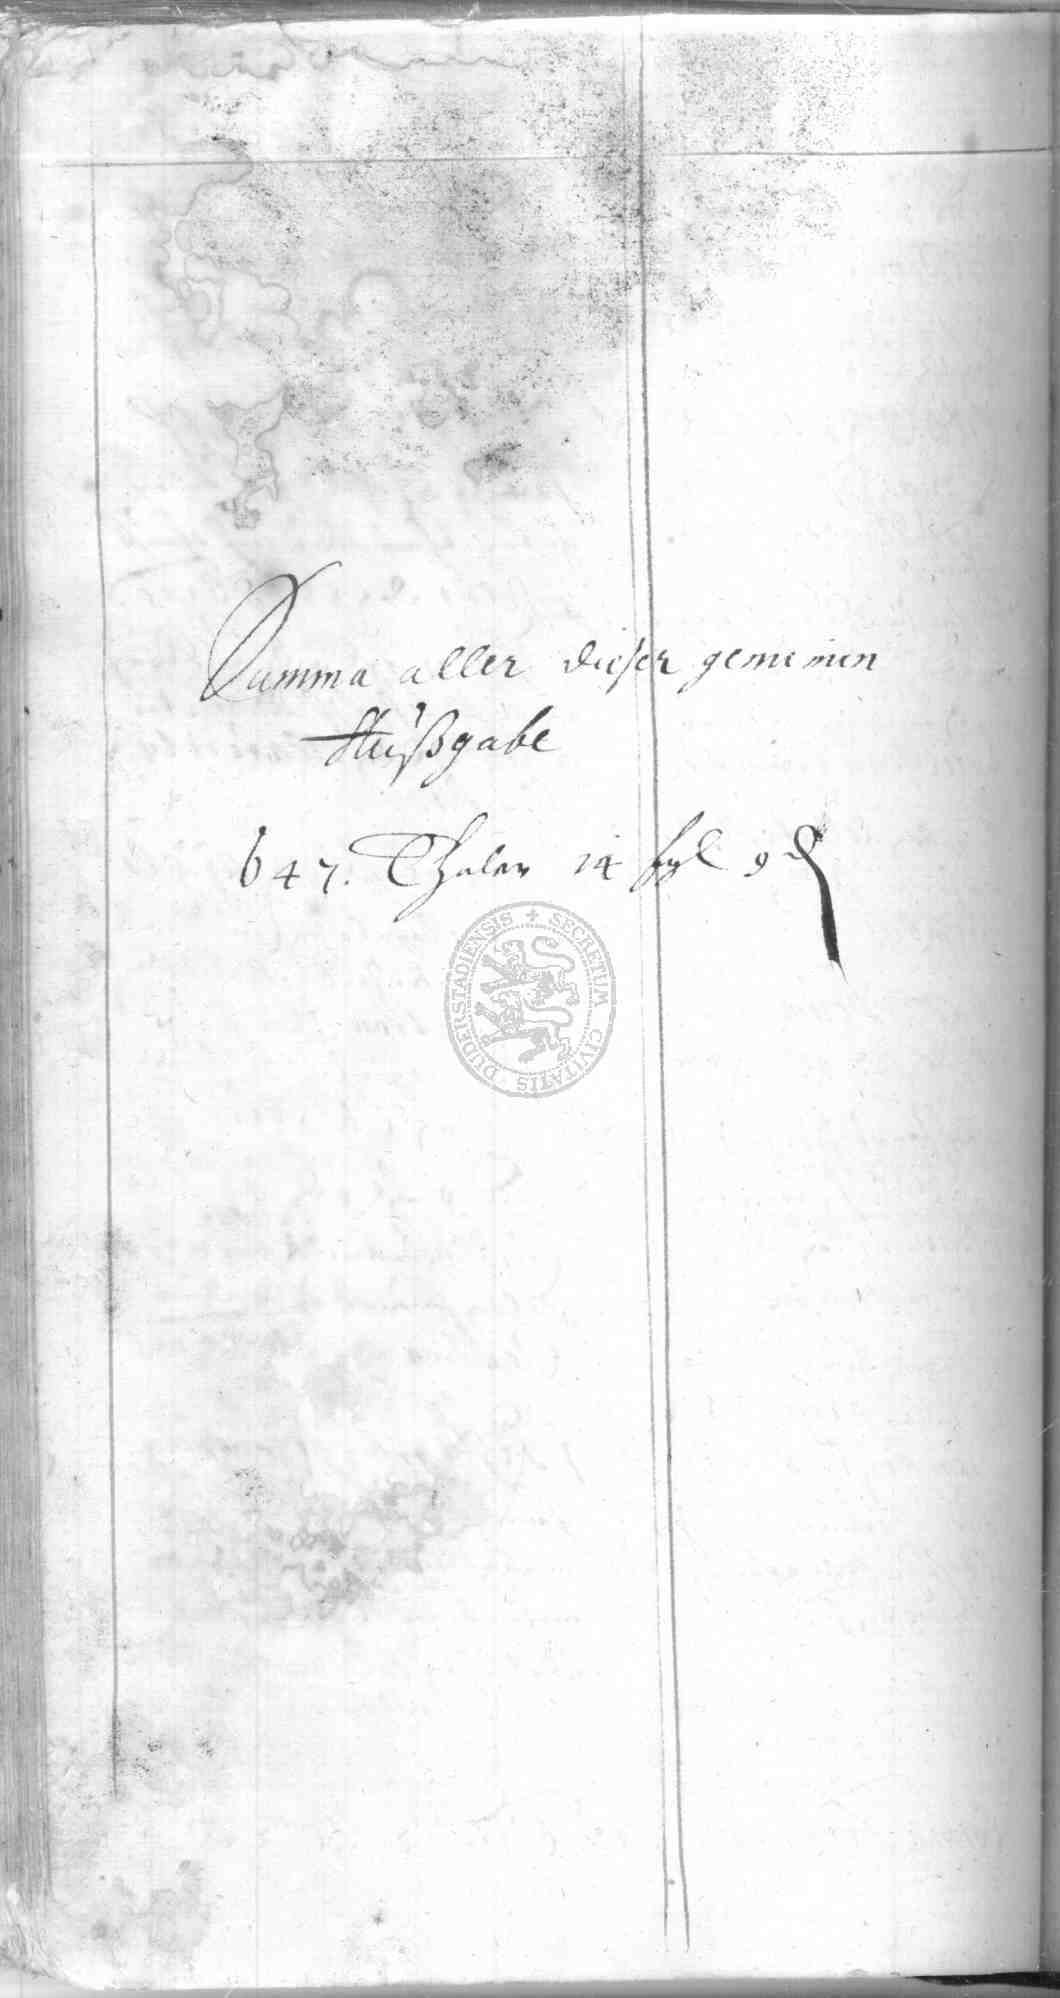 Summa aller dieser gemeinen
Außgabe
647. Thaler 14 ßgl 9 ₰
SECRETUM CIVITATIS DUDERSTADIENSIS